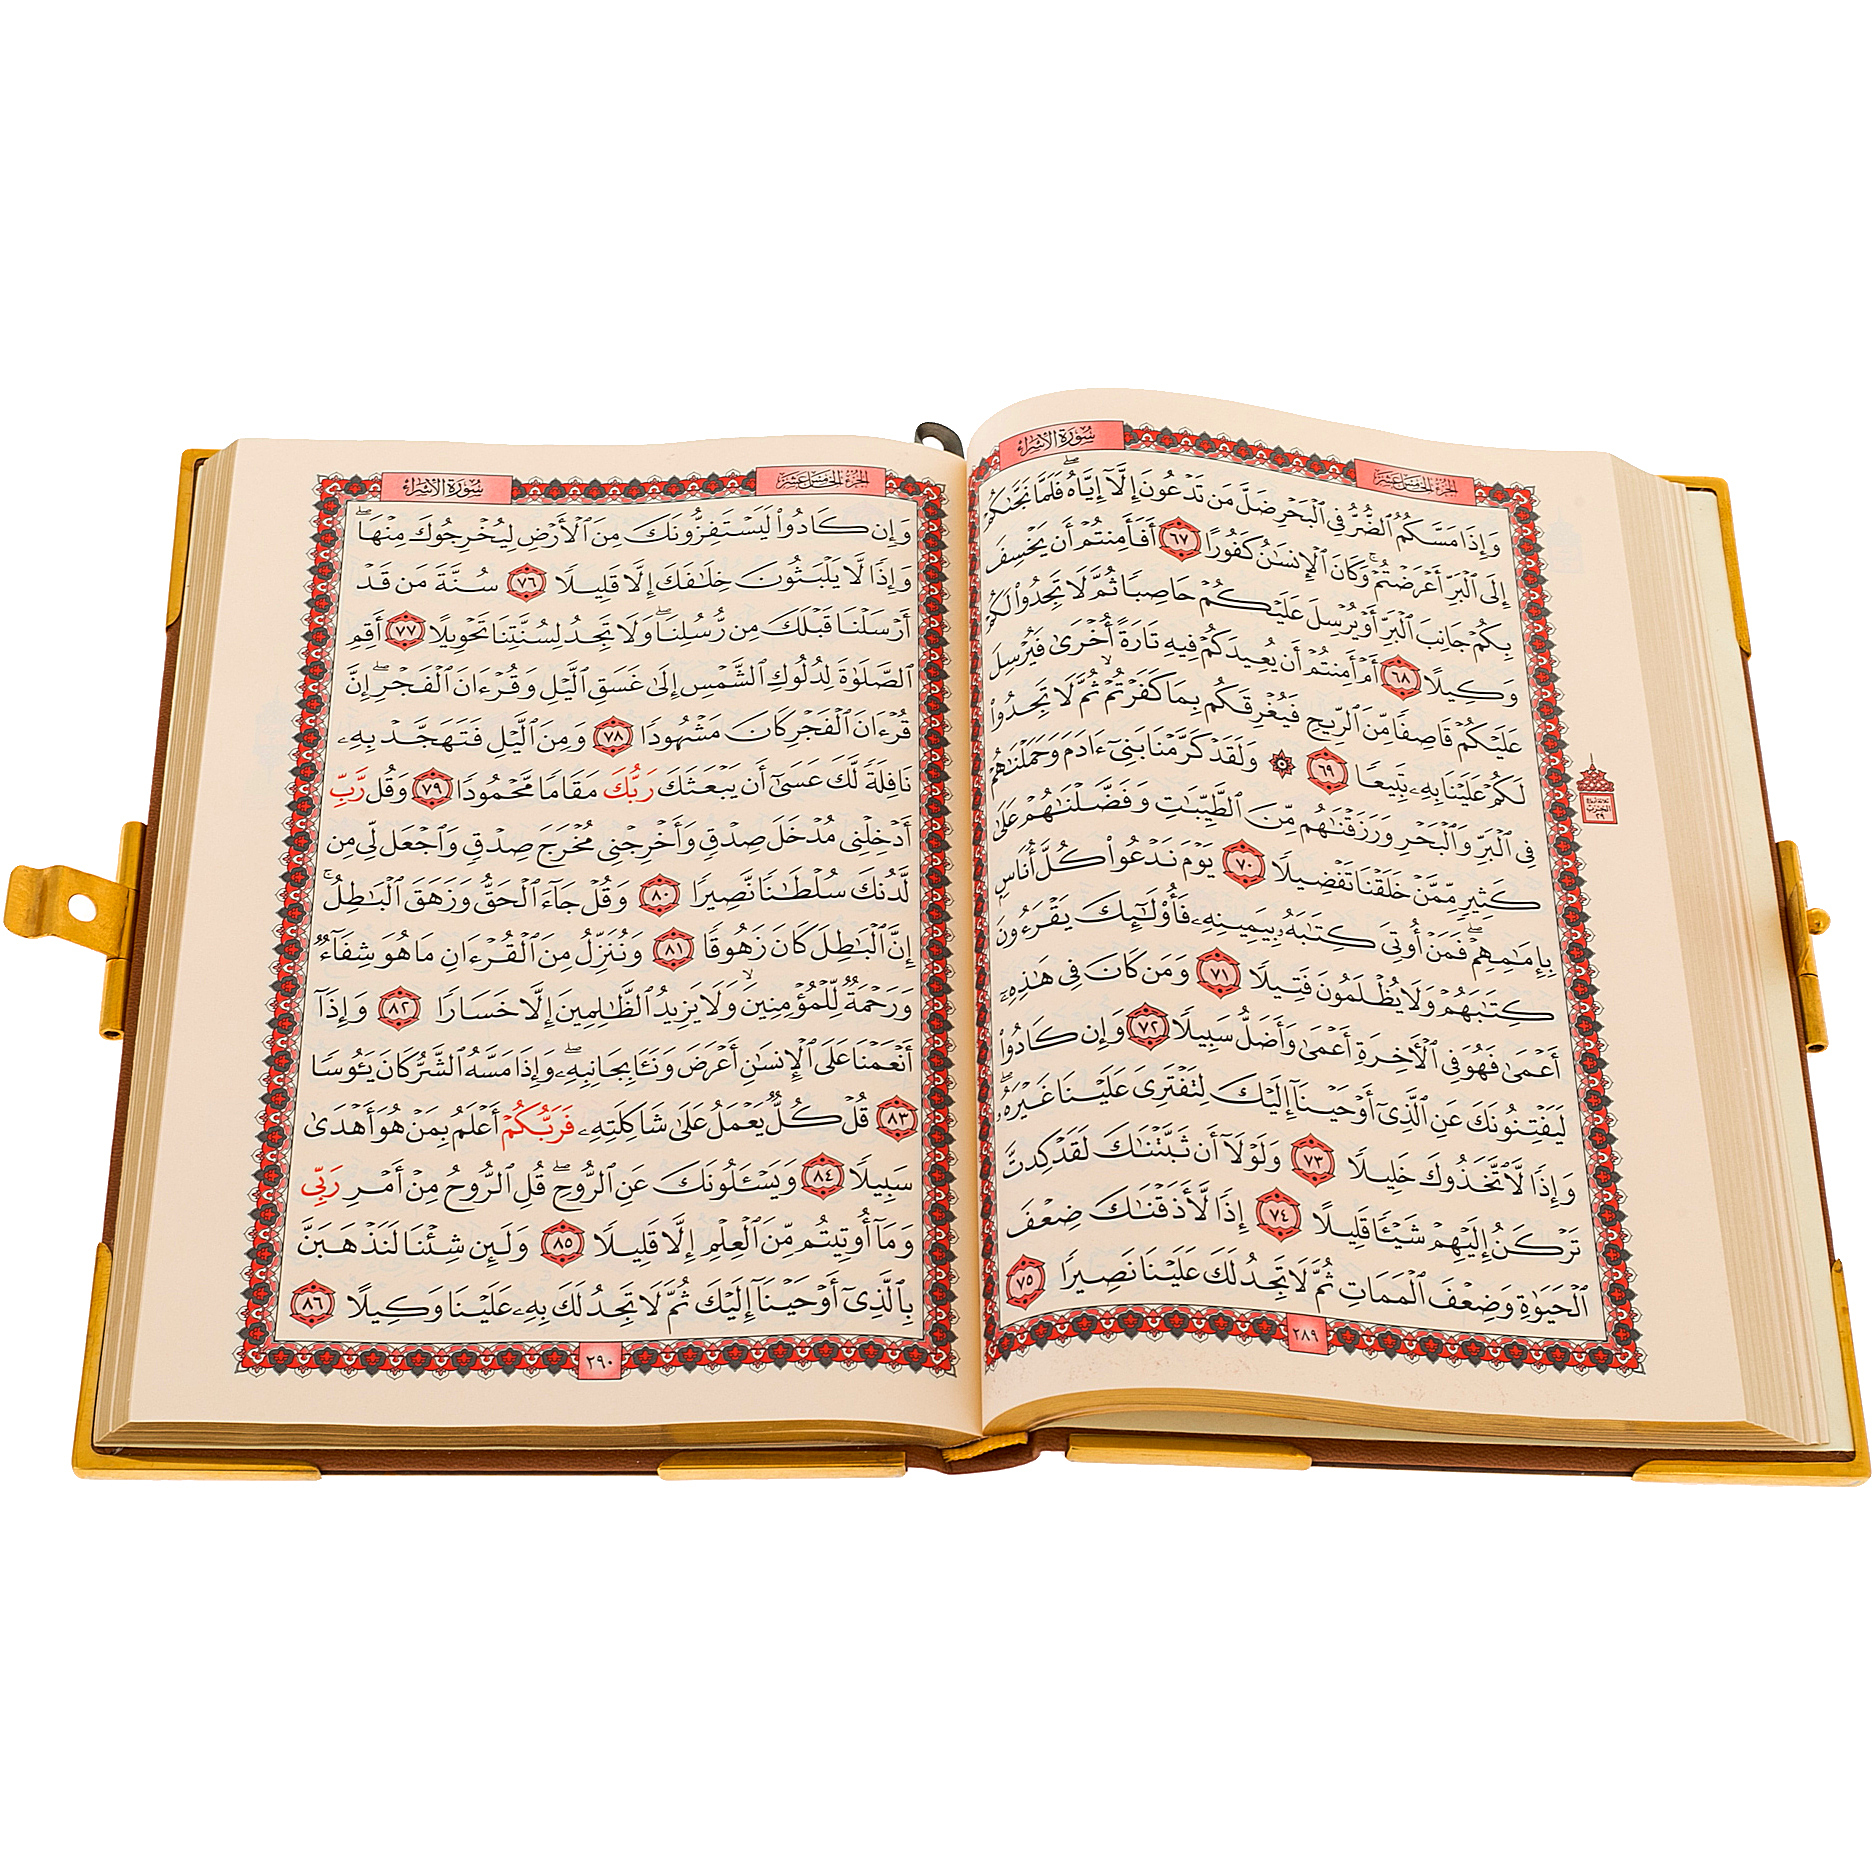 سُورَةُ الإِسْرَاءِ
الجُزْءُ الخَامِسَ عَشَرَ
وَإِذَا مَسَّكُمُ ٱلضُّرُّ فِي ٱلْبَحْرِ ضَلَّ مَن تَدْعُونَ إِلَّآ إِيَّاهُ ۖ فَلَمَّا نَجَّىٰكُمْ
إِلَى ٱلْبَرِّ أَعْرَضْتُمْ ۚ وَكَانَ ٱلْإِنسَٰنُ كَفُورًا ٦٧ أَفَأَمِنتُمْ أَن يَخْسِفَ
بِكُمْ جَانِبَ ٱلْبَرِّ أَوْ يُرْسِلَ عَلَيْكُمْ حَاصِبًا ثُمَّ لَا تَجِدُوا۟ لَكُمْ
وَكِيلًا ٦٨ أَمْ أَمِنتُمْ أَن يُعِيدَكُمْ فِيهِ تَارَةً أُخْرَىٰ فَيُرْسِلَ
عَلَيْكُمْ قَاصِفًا مِّنَ ٱلرِّيحِ فَيُغْرِقَكُم بِمَا كَفَرْتُمْ ۙ ثُمَّ لَا تَجِدُوا۟
لَكُمْ عَلَيْنَا بِهِۦ تَبِيعًا ٦٩ ۞ وَلَقَدْ كَرَّمْنَا بَنِىٓ ءَادَمَ وَحَمَلْنَٰهُمْ
فِي ٱلْبَرِّ وَٱلْبَحْرِ وَرَزَقْنَٰهُم مِّنَ ٱلطَّيِّبَٰتِ وَفَضَّلْنَٰهُمْ عَلَىٰ
كَثِيرٍ مِّمَّنْ خَلَقْنَا تَفْضِيلًا ٧٠ يَوْمَ نَدْعُوا۟ كُلَّ أُنَاسٍۭ
بِإِمَٰمِهِمْ ۖ فَمَنْ أُوتِىَ كِتَٰبَهُۥ بِيَمِينِهِۦ فَأُو۟لَٰٓئِكَ يَقْرَءُونَ
كِتَٰبَهُمْ وَلَا يُظْلَمُونَ فَتِيلًا ٧١ وَمَن كَانَ فِى هَٰذِهِۦٓ
أَعْمَىٰ فَهُوَ فِى ٱلْءَاخِرَةِ أَعْمَىٰ وَأَضَلُّ سَبِيلًا ٧٢ وَإِن كَادُوا۟
لَيَفْتِنُونَكَ عَنِ ٱلَّذِىٓ أَوْحَيْنَآ إِلَيْكَ لِتَفْتَرِىَ عَلَيْنَا غَيْرَهُۥ ۖ
وَإِذًا لَّٱتَّخَذُوكَ خَلِيلًا ٧٣ وَلَوْلَآ أَن ثَبَّتْنَٰكَ لَقَدْ كِدتَّ
تَرْكَنُ إِلَيْهِمْ شَيْـًٔا قَلِيلًا ٧٤ إِذًا لَّأَذَقْنَٰكَ ضِعْفَ
ٱلْحَيَوٰةِ وَضِعْفَ ٱلْمَمَاتِ ثُمَّ لَا تَجِدُ لَكَ عَلَيْنَا نَصِيرًا ٧٥
٢٨٩
ثلاثة أرباع
الحزب
٢٩
الجُزْءُ الخَامِسَ عَشَرَ
سُورَةُ الإِسْرَاءِ
وَإِن كَادُوا۟ لَيَسْتَفِزُّونَكَ مِنَ ٱلْأَرْضِ لِيُخْرِجُوكَ مِنْهَا ۖ
وَإِذًا لَّا يَلْبَثُونَ خِلَٰفَكَ إِلَّا قَلِيلًا ٧٦ سُنَّةَ مَن قَدْ
أَرْسَلْنَا قَبْلَكَ مِن رُّسُلِنَا ۖ وَلَا تَجِدُ لِسُنَّتِنَا تَحْوِيلًا ٧٧ أَقِمِ
ٱلصَّلَوٰةَ لِدُلُوكِ ٱلشَّمْسِ إِلَىٰ غَسَقِ ٱلَّيْلِ وَقُرْءَانَ ٱلْفَجْرِ ۖ إِنَّ
قُرْءَانَ ٱلْفَجْرِ كَانَ مَشْهُودًا ٧٨ وَمِنَ ٱلَّيْلِ فَتَهَجَّدْ بِهِۦ
نَافِلَةً لَّكَ عَسَىٰٓ أَن يَبْعَثَكَ رَبُّكَ مَقَامًا مَّحْمُودًا ٧٩ وَقُل رَّبِّ
أَدْخِلْنِى مُدْخَلَ صِدْقٍ وَأَخْرِجْنِى مُخْرَجَ صِدْقٍ وَٱجْعَل لِّى مِن
لَّدُنكَ سُلْطَٰنًا نَّصِيرًا ٨٠ وَقُلْ جَآءَ ٱلْحَقُّ وَزَهَقَ ٱلْبَٰطِلُ ۚ
إِنَّ ٱلْبَٰطِلَ كَانَ زَهُوقًا ٨١ وَنُنَزِّلُ مِنَ ٱلْقُرْءَانِ مَا هُوَ شِفَآءٌ
وَرَحْمَةٌ لِّلْمُؤْمِنِينَ ۙ وَلَا يَزِيدُ ٱلظَّٰلِمِينَ إِلَّا خَسَارًا ٨٢ وَإِذَآ
أَنْعَمْنَا عَلَى ٱلْإِنسَٰنِ أَعْرَضَ وَنَـَٔا بِجَانِبِهِۦ ۖ وَإِذَا مَسَّهُ ٱلشَّرُّ كَانَ يَـُٔوسًا
٨٣ قُلْ كُلٌّ يَعْمَلُ عَلَىٰ شَاكِلَتِهِۦ فَرَبُّكُمْ أَعْلَمُ بِمَنْ هُوَ أَهْدَىٰ
سَبِيلًا ٨٤ وَيَسْـَٔلُونَكَ عَنِ ٱلرُّوحِ ۖ قُلِ ٱلرُّوحُ مِنْ أَمْرِ رَبِّى
وَمَآ أُوتِيتُم مِّنَ ٱلْعِلْمِ إِلَّا قَلِيلًا ٨٥ وَلَئِن شِئْنَا لَنَذْهَبَنَّ
بِٱلَّذِىٓ أَوْحَيْنَآ إِلَيْكَ ثُمَّ لَا تَجِدُ لَكَ بِهِۦ عَلَيْنَا وَكِيلًا ٨٦
٢٩٠